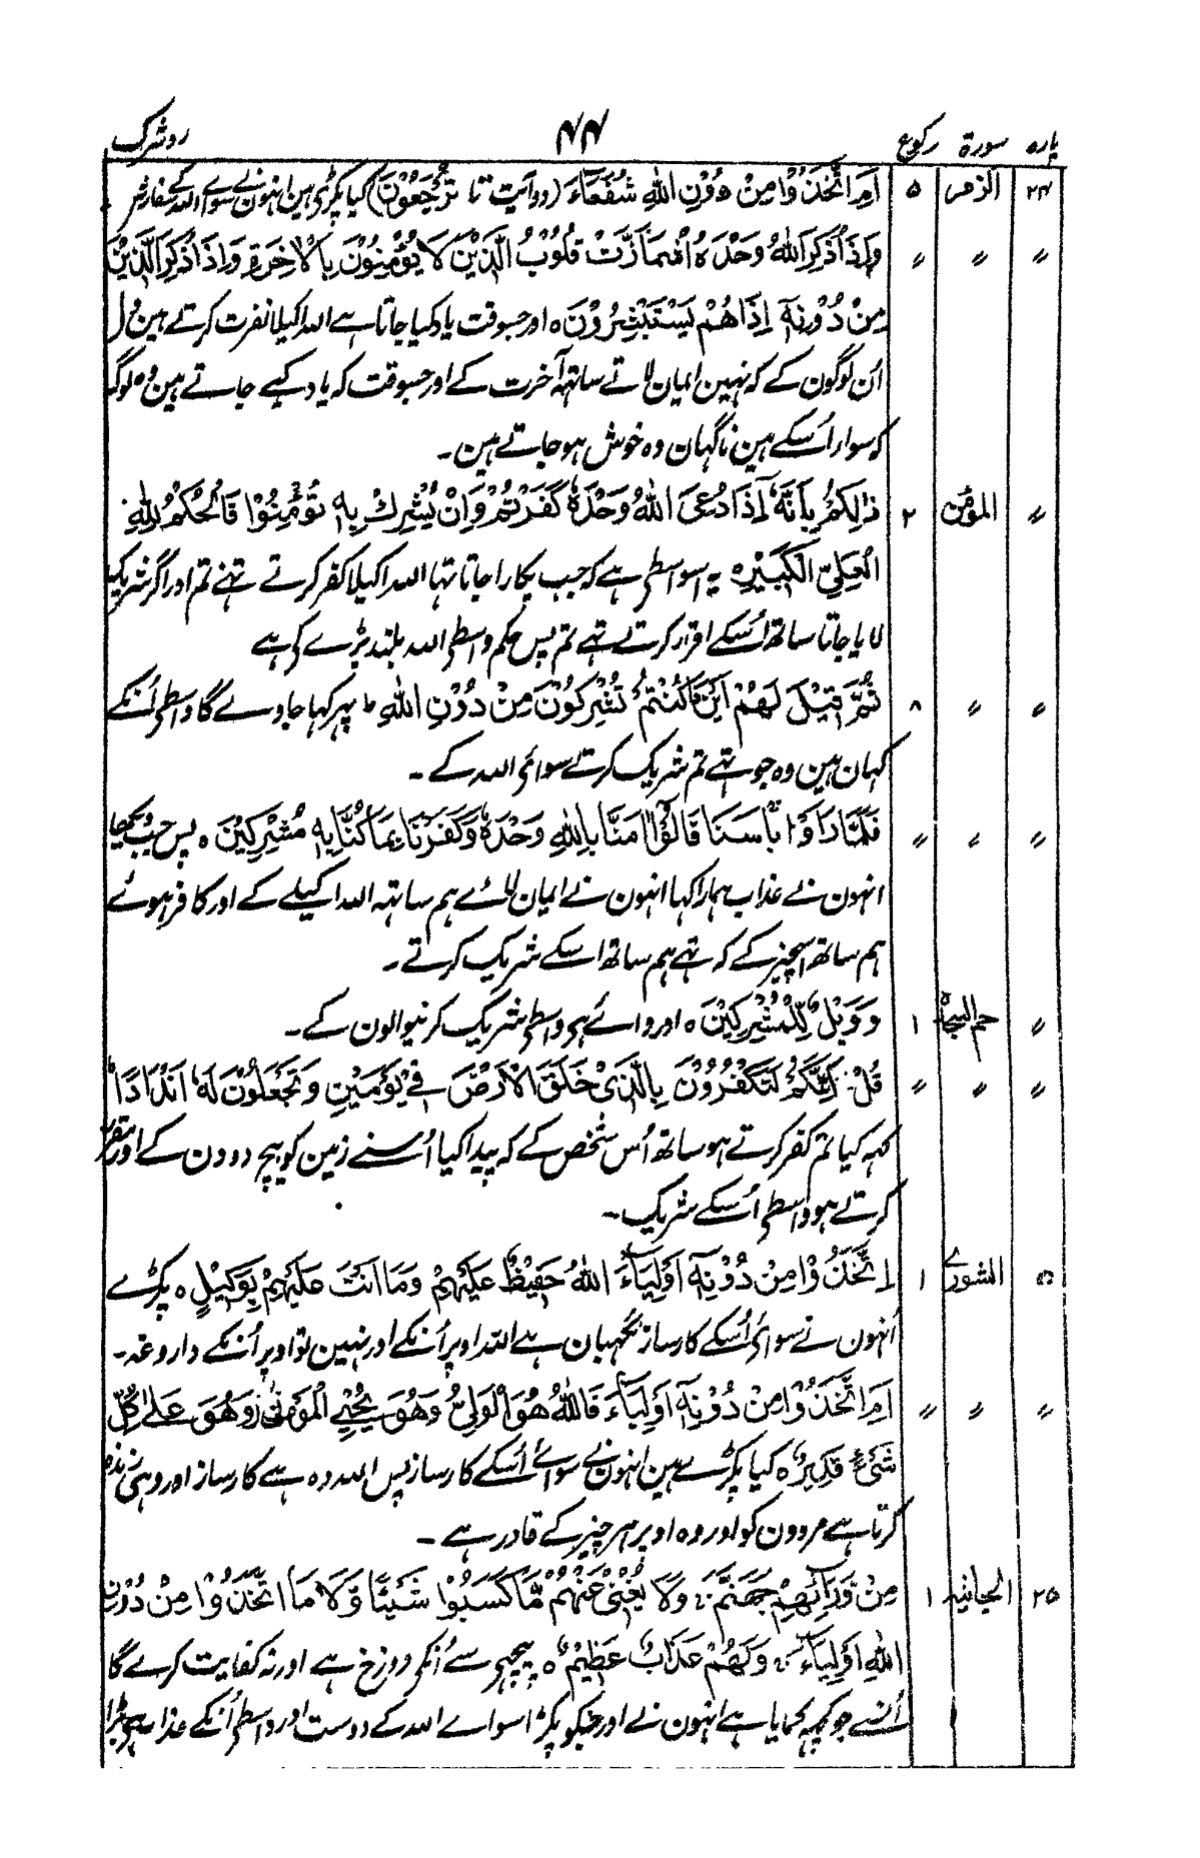 پارہ سورۃ رکوع ۴۴ رد شرک
۲۴ الزمر ۵ اَمِ اتَّخَذُوْا مِنْ دُوْنِ اللّٰهِ شُفَعَآءَ (دو آیت تا تُرْجَعُوْنَ) کیا پکڑی ہین انہون نے سوای اللہ کے سفارشی
〃 〃 〃 وَاِذَا ذُكِرَ اللّٰهُ وَحْدَهُ اشْمَاَزَّتْ قُلُوْبُ الَّذِيْنَ لَا يُؤْمِنُوْنَ بِالْاٰخِرَةِ وَاِذَا ذُكِرَ الَّذِيْنَ
مِنْ دُوْنِهٖٓ اِذَا هُمْ يَسْتَبْشِرُوْنَ ہ اور جسوقت یاد کیا جاتا ہے اللہ اکیلا نفرت کرتے ہین دل
اُن لوگون کے کہ نہین ایمان لاتے ساتہہ آخرت کے اور جسوقت کہ یاد کیے جاتے ہین وہ لوگ
کہ سواء اُسکے ہین ناگہان وہ خوش ہو جاتے ہین۔
〃 المؤمن ۲ ذٰلِكُمْ بِاَنَّهٗٓ اِذَا دُعِیَ اللّٰهُ وَحْدَهٗ كَفَرْتُمْ وَاِنْ يُّشْرَكْ بِهٖ تُؤْمِنُوْا فَالْحُكْمُ لِلّٰهِ
الْعَلِیِّ الْكَبِيْرِ ہ یہ اسواسطی ہے کہ جب پکارا جاتا تہا اللہ اکیلا کفر کرتے تہے تم اور اگر شریک
لایا جاتا ساتھ اُسکے اقرار کرتے تہے تم پس حکم واسطی اللہ بلند بڑے کی ہے
〃 〃 ۸ ثُمَّ قِيْلَ لَهُمْ اَيْنَ مَا كُنْتُمْ تُشْرِكُوْنَ مِنْ دُوْنِ اللّٰهِ ط پہر کہا جاوے گا واسطی اُنکے
کہان ہین وہ جو تہے تم شریک کرتے سوائی اللہ کے ۔
〃 〃 〃 فَلَمَّا رَاَوْا بَاْسَنَا قَالُوْٓا اٰمَنَّا بِاللّٰهِ وَحْدَهٗ وَكَفَرْنَا بِمَا كُنَّا بِهٖ مُشْرِكِيْنَ ہ پس جب دیکہا
انہون نے عذاب ہمارا کہا انہون نے ایمان لائے ہم ساتہہ اللہ اکیلے کے اور کافر ہوئے
ہم ساتھ اسچیز کے کہ تہے ہم ساتھ اسکے شریک کرتے ۔
〃 حم السجدۃ ۱ وَوَيْلٌ لِّلْمُشْرِكِيْنَ ہ اور وائے ہی واسطی شریک کرنیوالون کے ۔
〃 〃 〃 قُلْ اَئِنَّكُمْ لَتَكْفُرُوْنَ بِالَّذِیْ خَلَقَ الْاَرْضَ فِیْ يَوْمَيْنِ وَتَجْعَلُوْنَ لَهٗٓ اَنْدَادًا
کہہ کیا تم کفر کرتے ہو ساتھ اُس شخص کے کہ پیدا کیا اُسنے زمین کو بیچ دو دن کے اور مقرر
کرتے ہو واسطی اُسکے شریک ۔
الشورٰے ۱ اتَّخَذُوْا مِنْ دُوْنِهٖٓ اَوْلِيَآءَ اللّٰهُ حَفِيْظٌ عَلَيْهِمْ وَمَا اَنْتَ عَلَيْهِمْ بِوَكِيْلٍ ہ پکڑے
اُنہون نے سوائی اُسکے کارساز نگہبان ہے اللہ اوپر اُنکے اور نہین تو اوپر اُنکے داروغہ ۔
〃 〃 〃 اَمِ اتَّخَذُوْا مِنْ دُوْنِهٖٓ اَوْلِيَآءَ فَاللّٰهُ هُوَ الْوَلِیُّ وَهُوَ يُحْیِ الْمَوْتٰی ز وَهُوَ عَلٰی كُلِّ
شَیْءٍ قَدِيْرٌ ہ کیا پکڑے ہین انہون نے سوائے اُسکے کارساز پس اللہ وہ ہے کارساز اور وہی زندہ
کرتا ہے مردون کو اور وہ اوپر ہر چیز کے قادر ہے ۔
۲۵ الجاثیہ ۱ مِنْ وَّرَآئِهِمْ جَهَنَّمُ وَلَا يُغْنِیْ عَنْهُمْ مَّا كَسَبُوْا شَيْئًا وَّلَا مَا اتَّخَذُوْا مِنْ دُوْنِ
اللّٰهِ اَوْلِيَآءَ وَلَهُمْ عَذَابٌ عَظِيْمٌ ہ پیچہی سے اُنکی دوزخ ہے اور نہ کفایت کرے گا
اُنسے جو کچہہ کمایا ہے انہون نے اور جنکو پکڑا سواے اللہ کے دوست اور واسطی اُنکے عذاب ہی بڑا